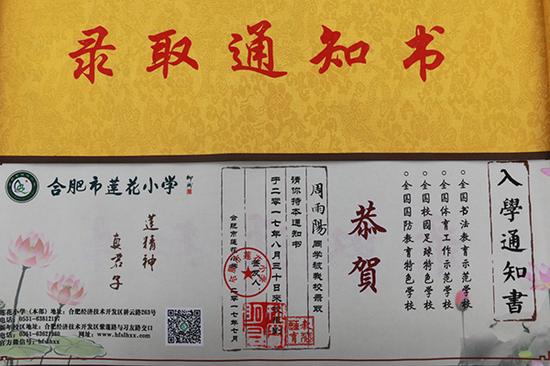 录取通知书
入學通知書
全国书法教育示范学校
全国体育工作示范学校
全国校园足球特色学校
全国国防教育特色学校
恭賀
周雨陽 同学被我校录取
请你持本通知书
于二零一七年八月三十日来校
签发人：
合肥市莲花
二零一七年七月
合肥市莲花小学
莲精神
真君子
莲花小学（本部）地址：合肥经济技术开发区耕云路263号
电话：0551-63812171
地址：合肥经济技术开发区紫蓬路与习友路交口
www.hfslhxx.com
官方微信号：hfslhxx